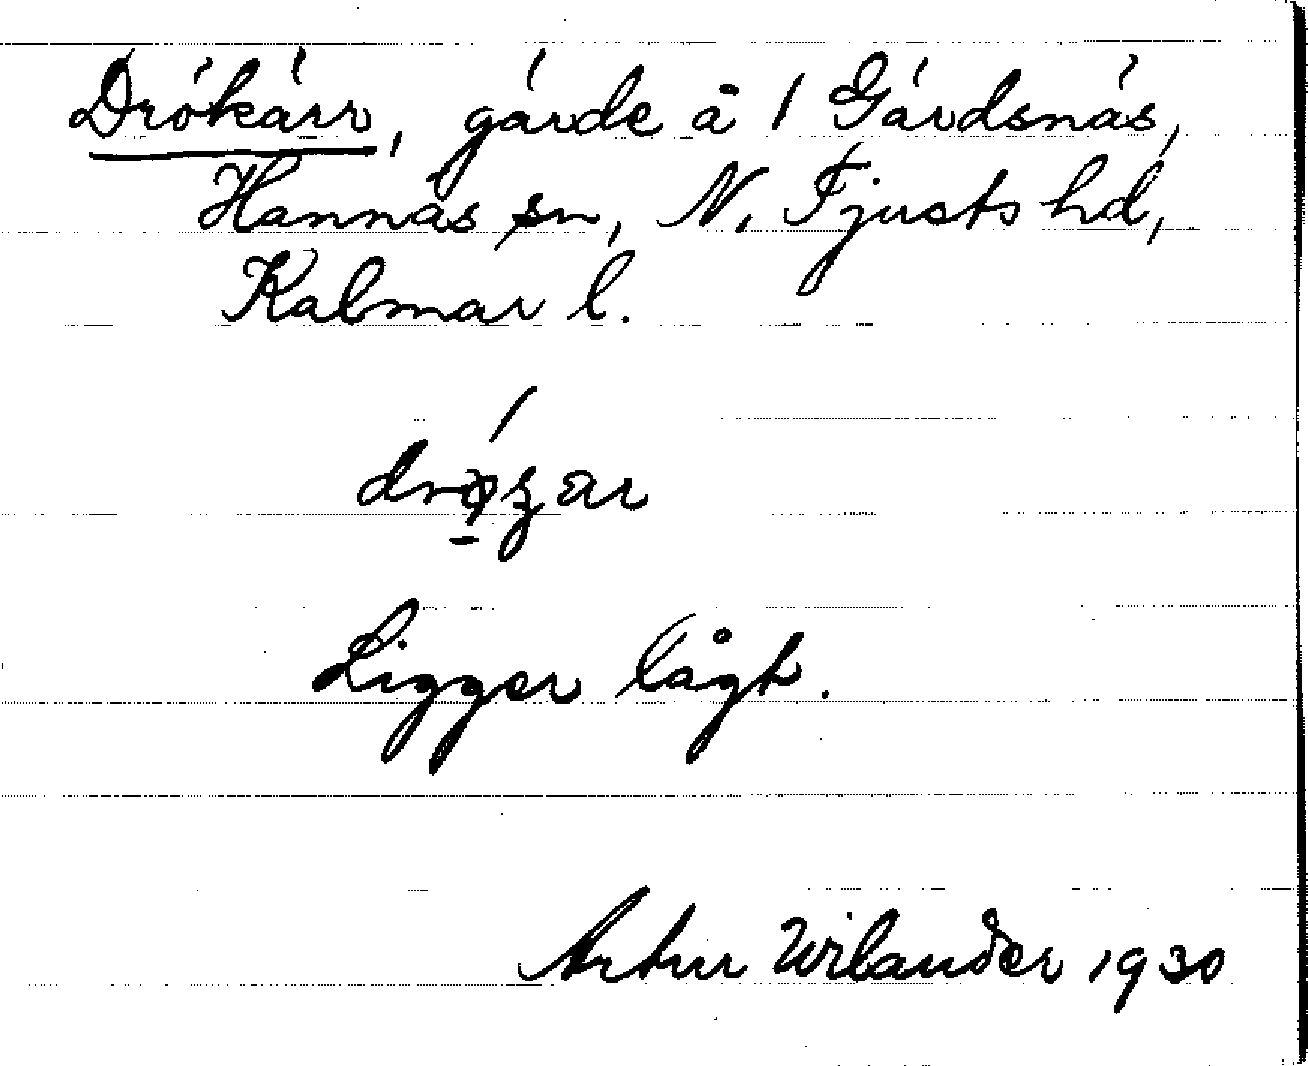 Drökärr, gärde å 1 Gärdsnäs,
Hannäs sn, N. Tjusts hd,
Kalmar l.
Ligger lågt.
Artur Wilander 1930